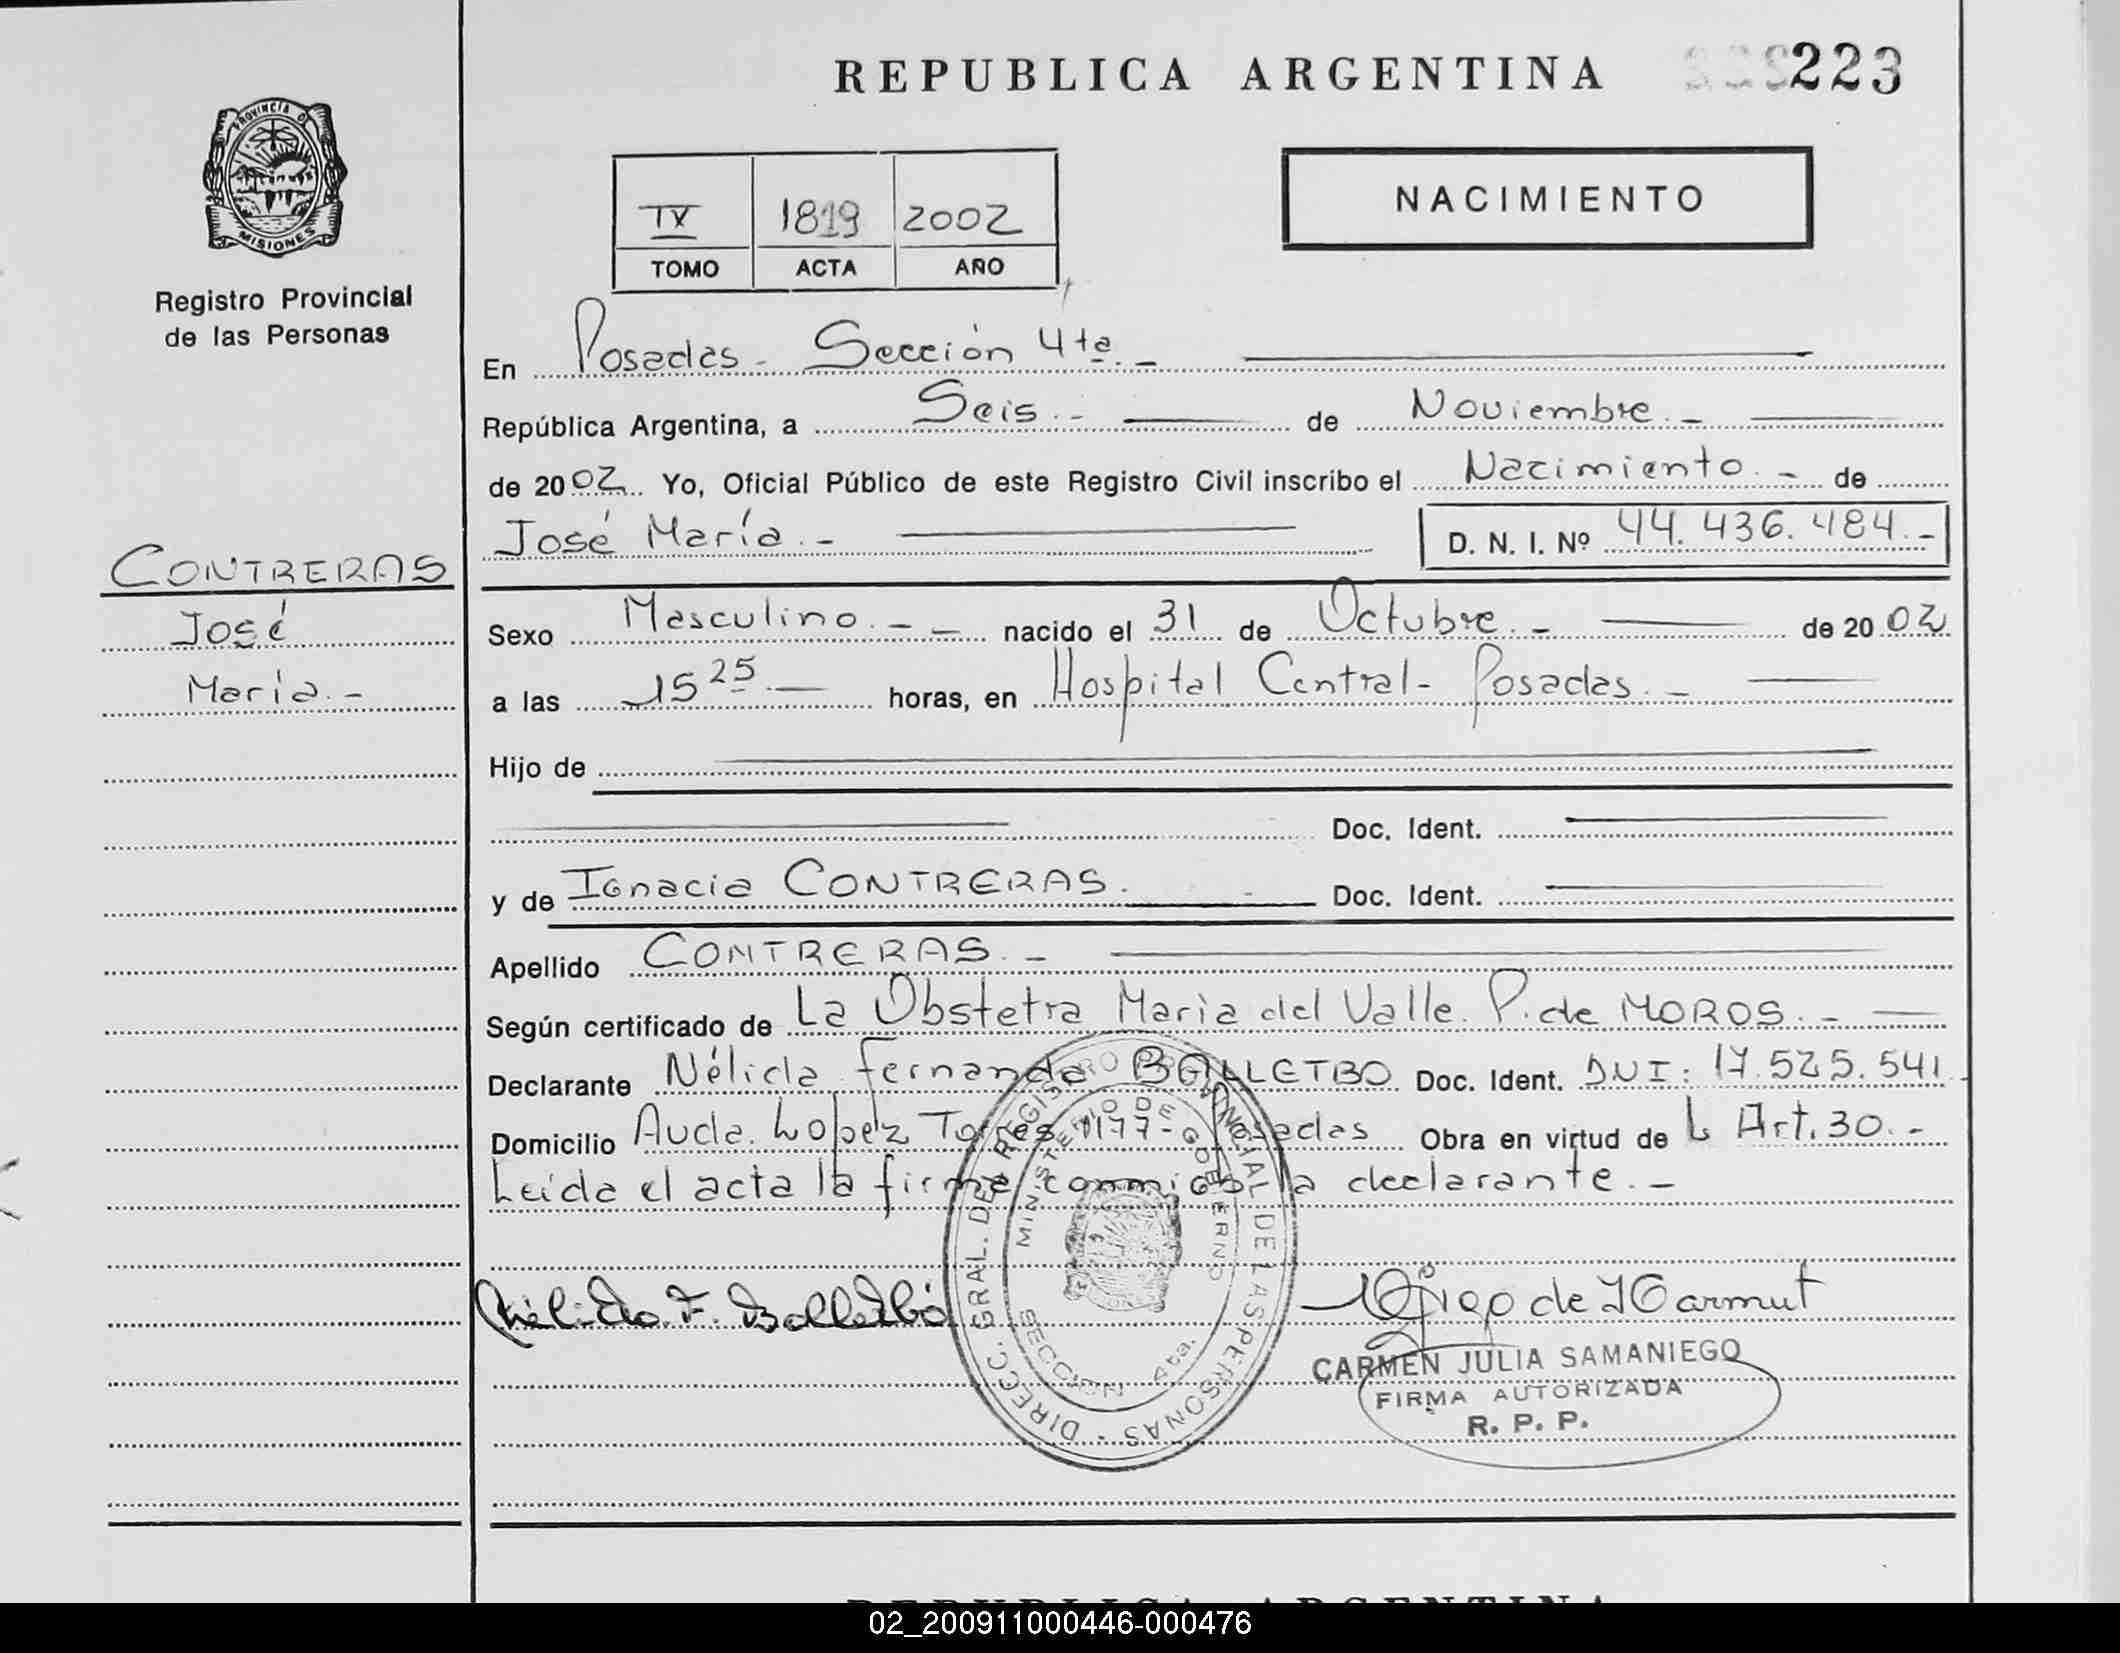 REPUBLICA ARGENTINA
223
PROVINCIA D
MISIONES
Registro Provincial
de las Personas
NACIMIENTO
IX 1819 2002
TOMO ACTA AÑO
En Posadas - Sección 4ta. -
República Argentina, a Seis. - de Noviembre. -
de 2002. Yo, Oficial Público de este Registro Civil inscribo el Nacimiento. - de
José María. -
D. N. I. Nº 44.436.484. -
CONTRERAS
José
María. -
Sexo Masculino. - - nacido el 31 de Octubre. - de 2002
a las 15 25 horas, en Hospital Central - Posadas. -
Hijo de
Doc. Ident.
y de Ignacia CONTRERAS. Doc. Ident.
Apellido CONTRERAS. -
Según certificado de La Obstetra María del Valle P. de MOROS. -
Declarante Nélida Fernanda BALLETBO Doc. Ident. DNI: 17.525.541
Domicilio Avda. Lopez Torres 1177 - Posadas Obra en virtud de L Art. 30. -
Leida el acta la firma conmigo la declarante. -
DIRECC. GRAL. DEL REGISTRO PROVINCIAL DE LAS PERSONAS -
MINISTERIO DE GOBIERNO
SECCION 4ta.
Nélida F. Balletbó
CARMEN JULIA SAMANIEGO
FIRMA AUTORIZADA
R. P. P.
REPUBLICA ARGENTINA
02_200911000446-000476